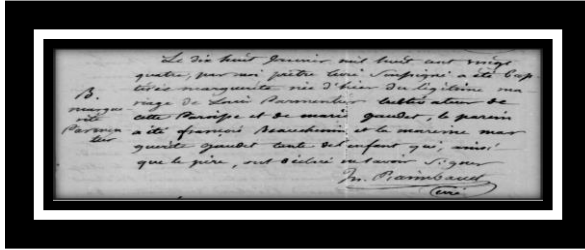 Le dix huit Janvier mil huit cent vingt
quatre, par moi prêtre curé soussigné a été bap
tisée marguerite née d'hier du légitime ma
riage de Louis Parmentier cultivateur de
cette Paroisse et de marie gaudet, le parein
a été françois Beauchemin et la mareine mar
guerite gaudet tante de l'enfant qui, ainsi
que le père, ont déclaré ne savoir signer
Jn. Raimbaud
Curé
B.
margue
rite
Parmen
tier